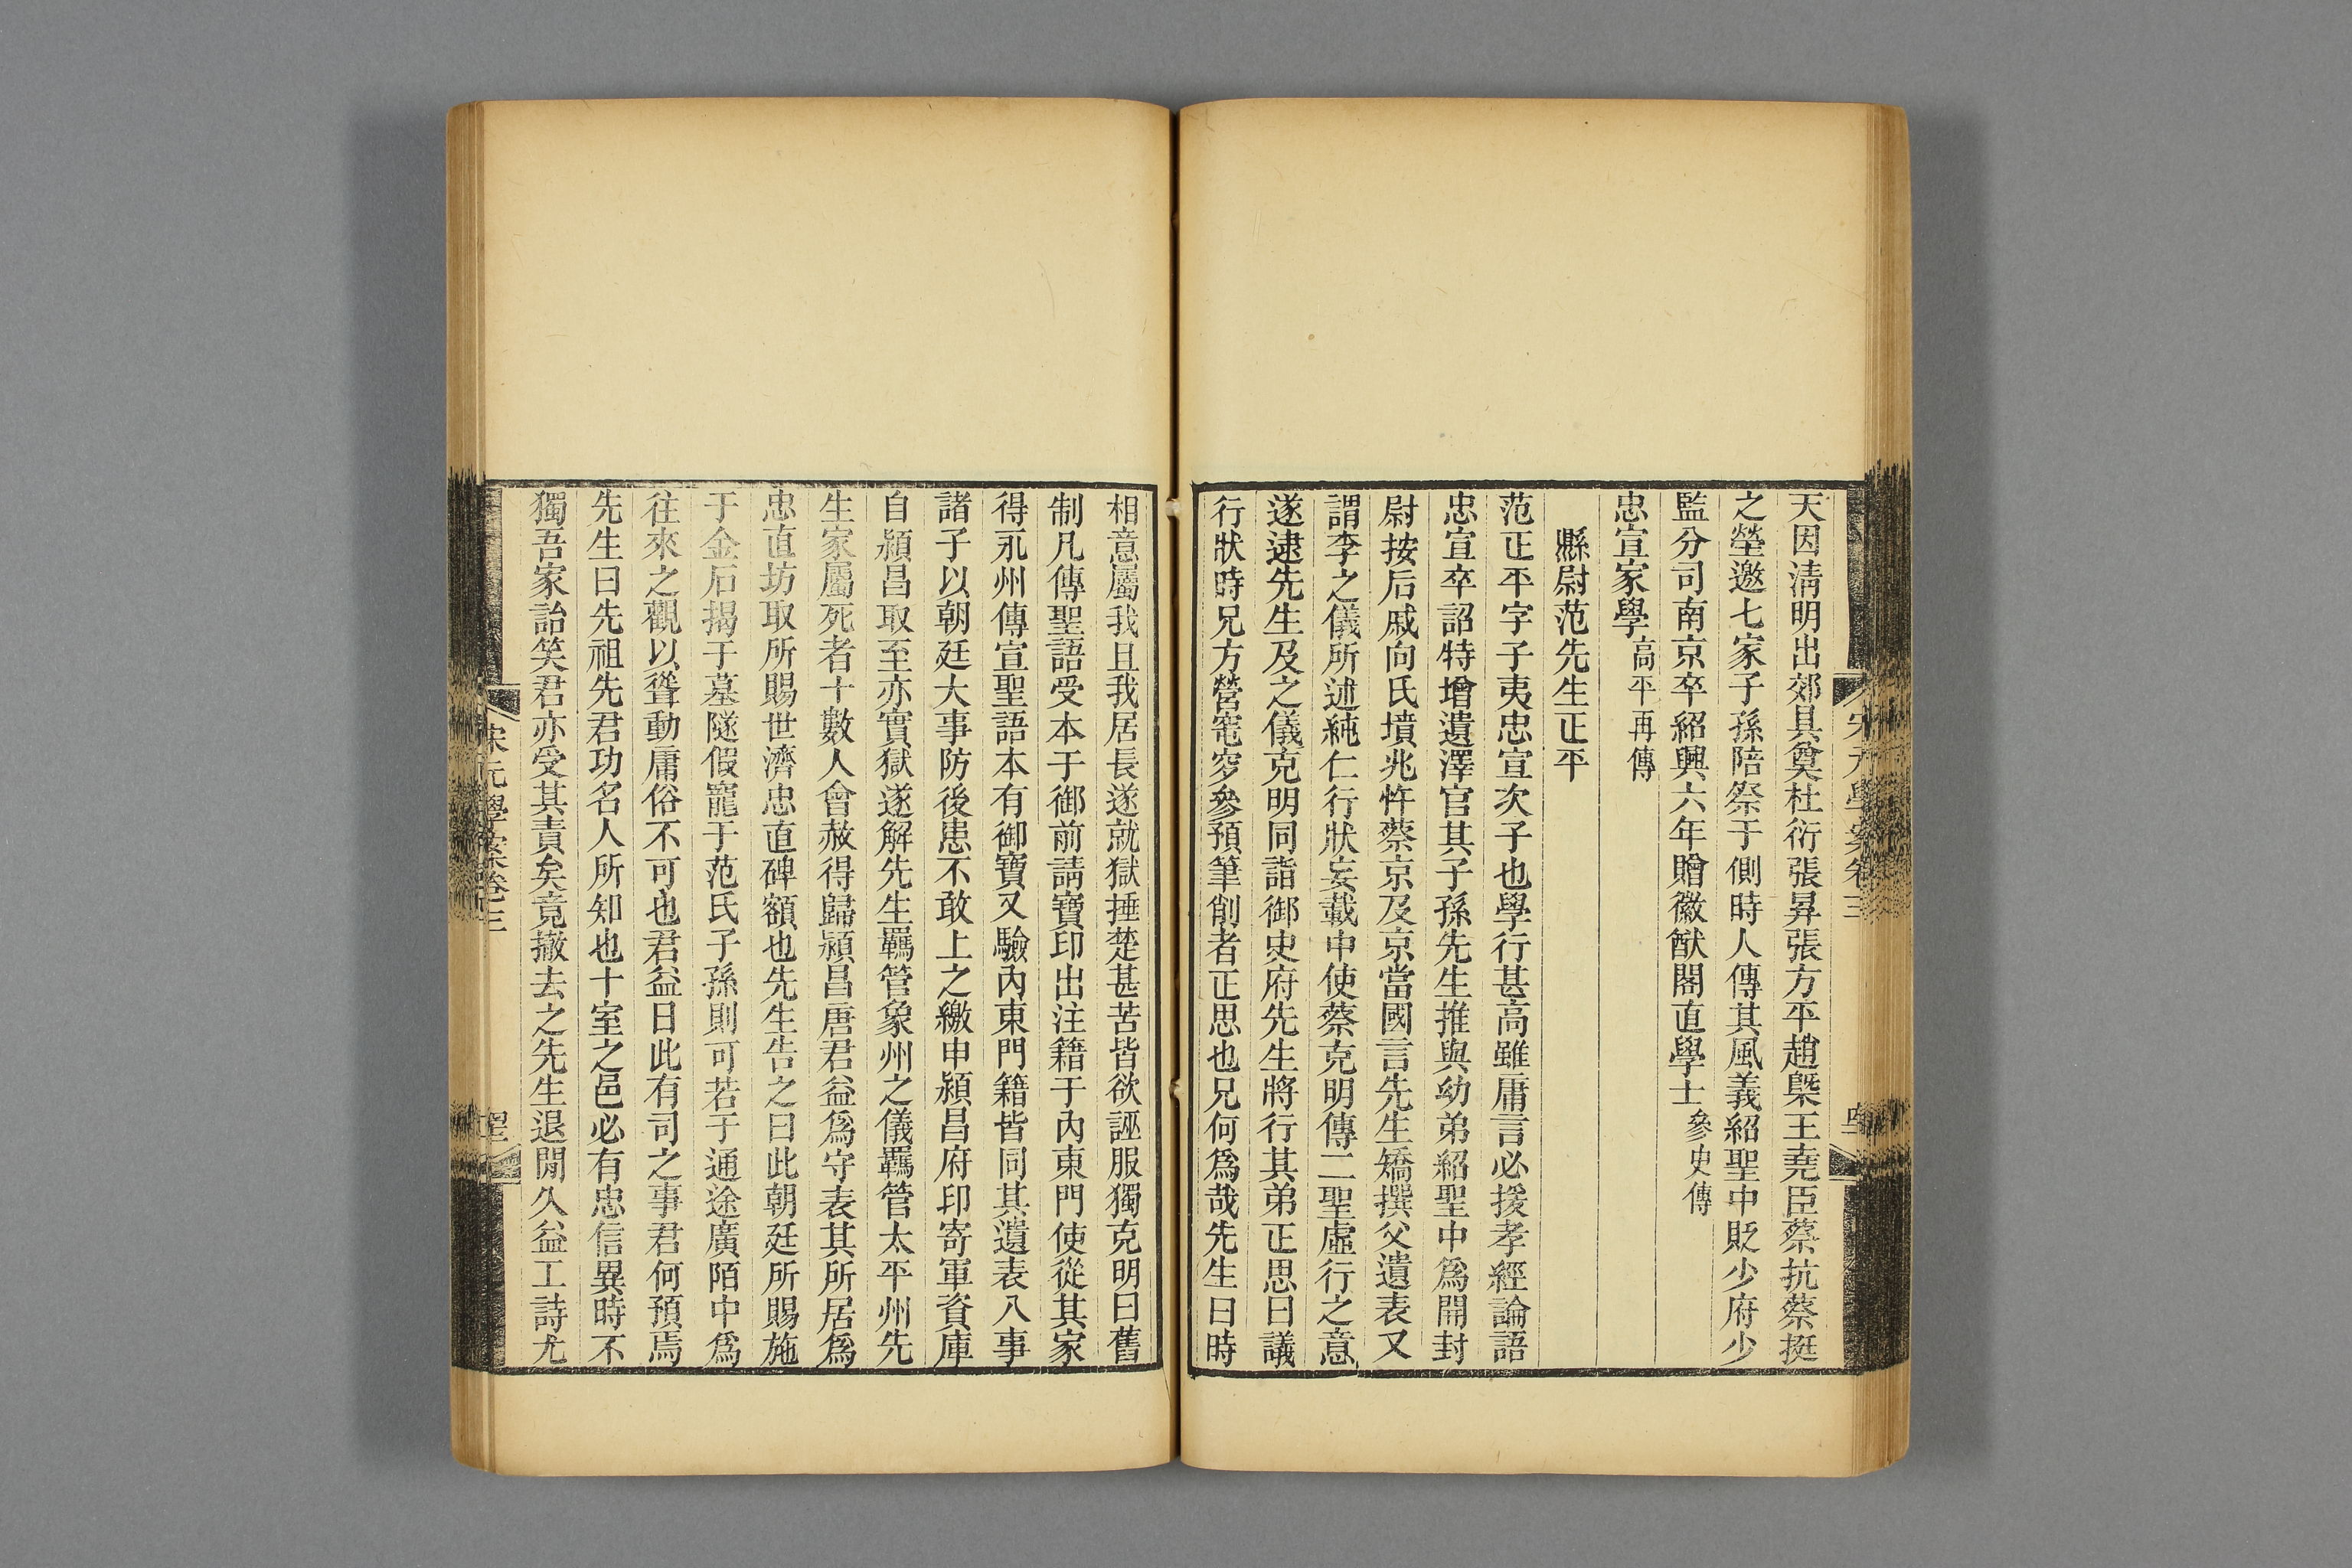 天因淸明出郊具奠杜衍張昇張方平趙槩王堯臣蔡抗蔡挺
之塋邀七家子孫陪祭于側時人傳其風義紹聖中貶少府少
監分司南京卒紹興六年贈徽猷閣直學士參史傳
忠宣家學高平再傳
縣尉范先生正平
范正平字子夷忠宣次子也學行甚高雖庸言必援孝經論語
忠宣卒詔特增遺澤官其子孫先生推與幼弟紹聖中爲開封
尉按后戚向氏墳兆忤蔡京及京當國言先生矯撰父遺表又
謂李之儀所述純仁行狀妄載中使蔡克明傳二聖虛行之意
遂逮先生及之儀克明同詣御史府先生將行其弟正思曰議
行狀時兄方營窀穸參預筆削者正思也兄何爲哉先生曰時
相意屬我且我居長遂就獄捶楚甚苦皆欲誣服獨克明曰舊
制凡傳聖語受本于御前請寶印出注籍于內東門使從其家
得永州傳宣聖語本有御寶又驗內東門籍皆同其遺表八事
諸子以朝廷大事防後患不敢上之繳申潁昌府印寄軍資庫
自潁昌取至亦實獄遂解先生羈管象州之儀羈管太平州先
生家屬死者十數人會赦得歸潁昌唐君益爲守表其所居爲
忠直坊取所賜世濟忠直碑額也先生告之曰此朝廷所賜施
于金石揭于墓隧假寵于范氏子孫則可若于通途廣陌中爲
往來之觀以聳動庸俗不可也君益曰此有司之事君何預焉
先生曰先祖先君功名人所知也十室之邑必有忠信異時不
獨吾家詒笑君亦受其責矣竟撤去之先生退閒久益工詩尤
宋元學案卷三